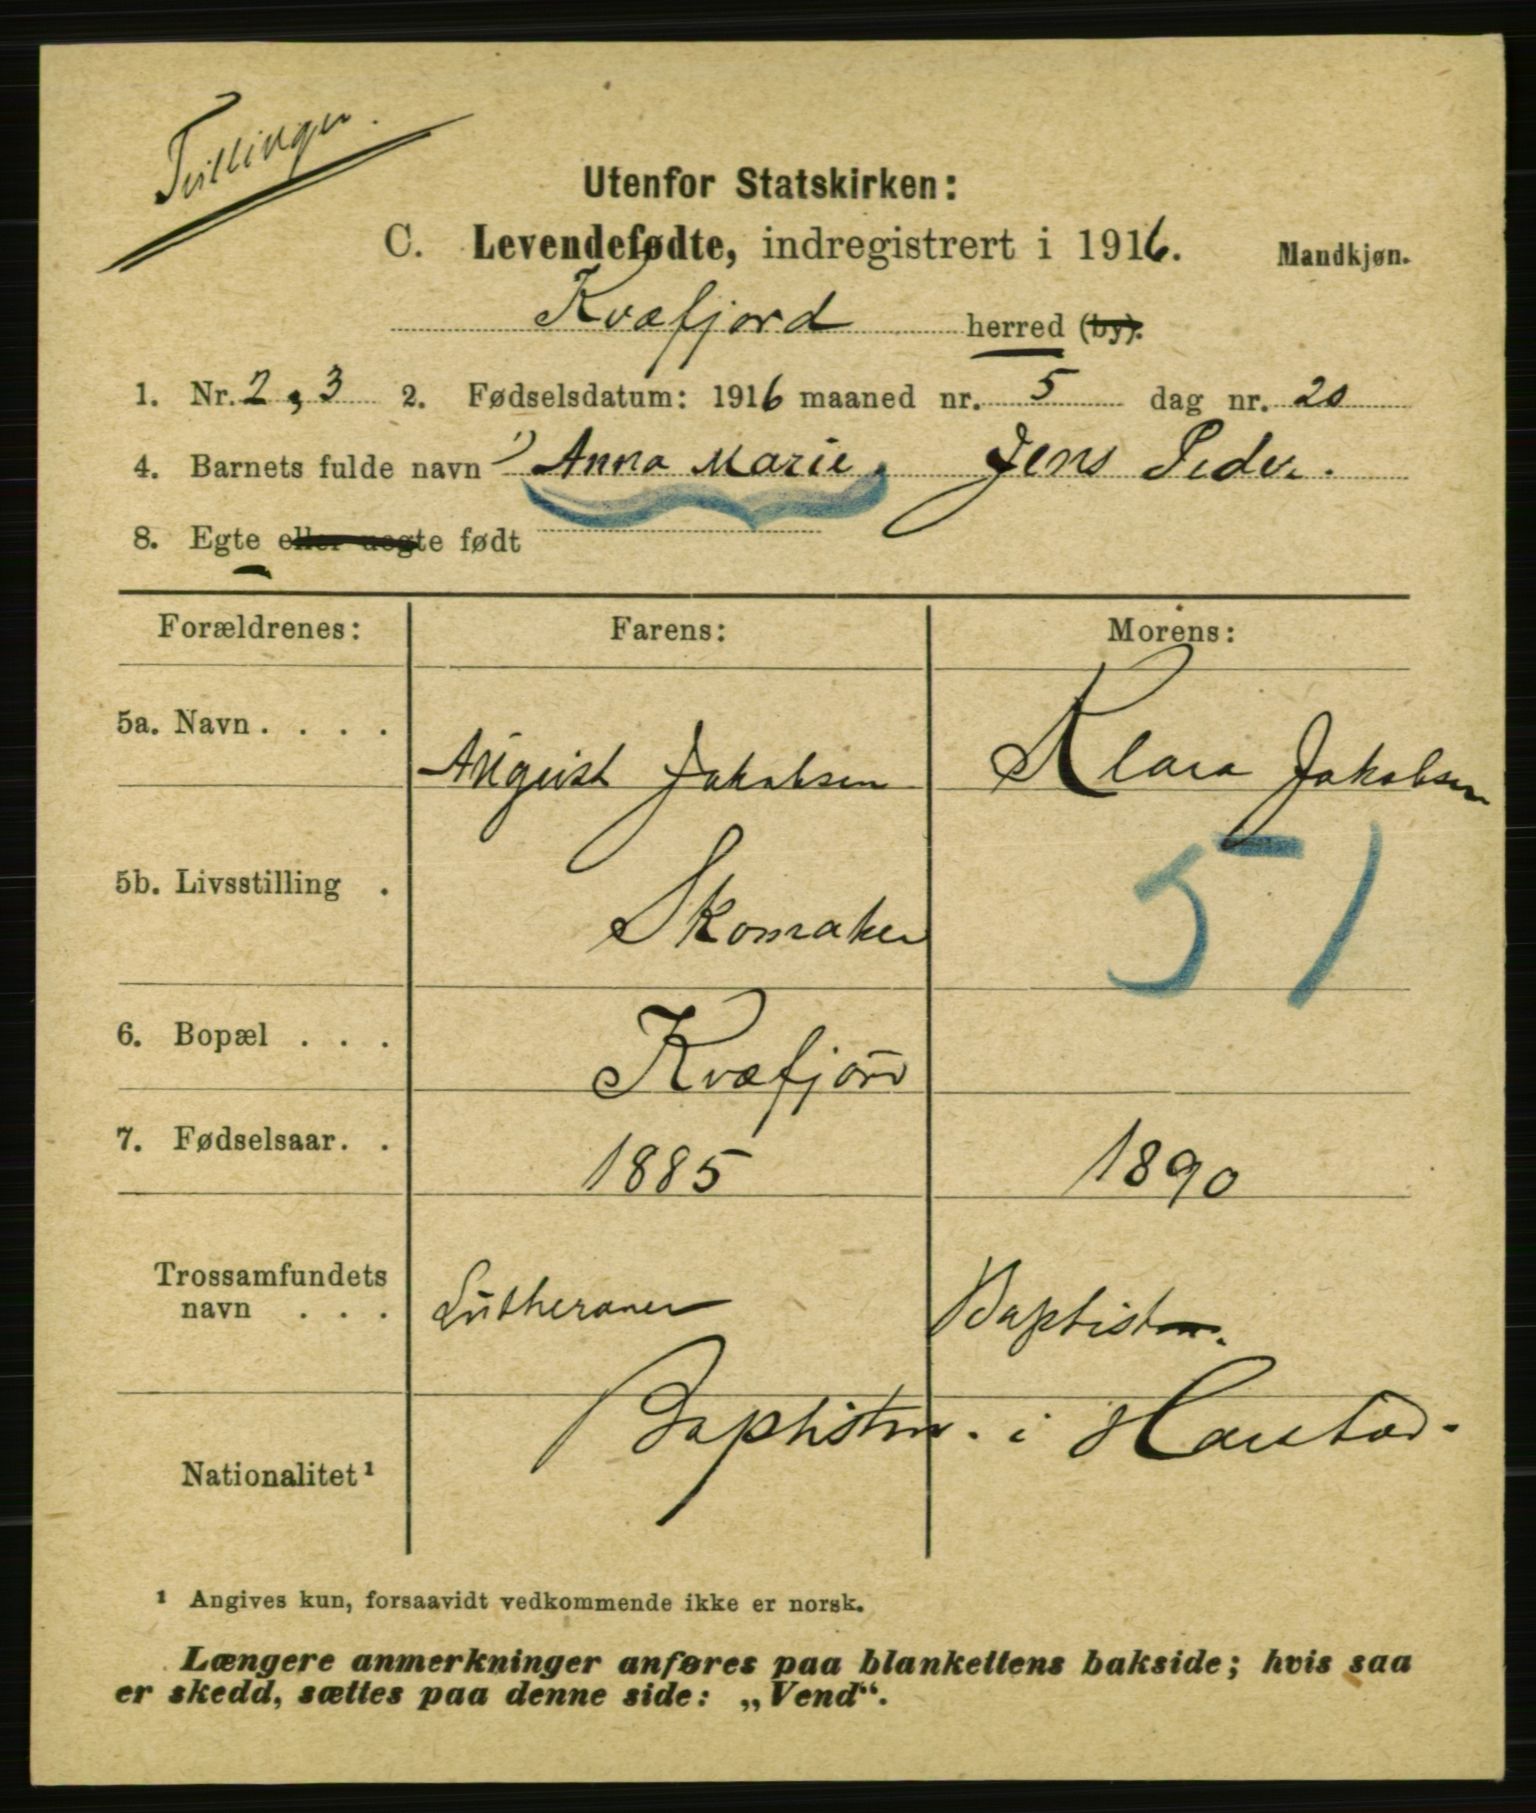 Tvillinger.
Utenfor Statskirken:
C. Levendefødte, indregistrert i 1916. Mandkjøn.
Kvæfjord herred (by).
1. Nr. 2, 3 2. Fødselsdatum: 1916 maaned nr. 5 dag nr. 20
4. Barnets fulde navn 1) Anna Marie, Jens Peder.
8. Egte eller uegte født
Forældrenes: Farens: Morens:
5a. Navn . . . . August Jakobsen Klara Jakobsen
5b. Livsstilling . Skomaker 57
6. Bopæl . . . Kvæfjord
7. Fødselsaar. . 1885 1890
Trossamfundets
navn . . . Lutheraner Baptist
Baptisten. i
Nationalitet¹
¹ Angives kun, forsaavidt vedkommende ikke er norsk.
Længere anmerkninger anføres paa blankettens bakside; hvis saa
er skedd, sættes paa denne side: „Vend“.